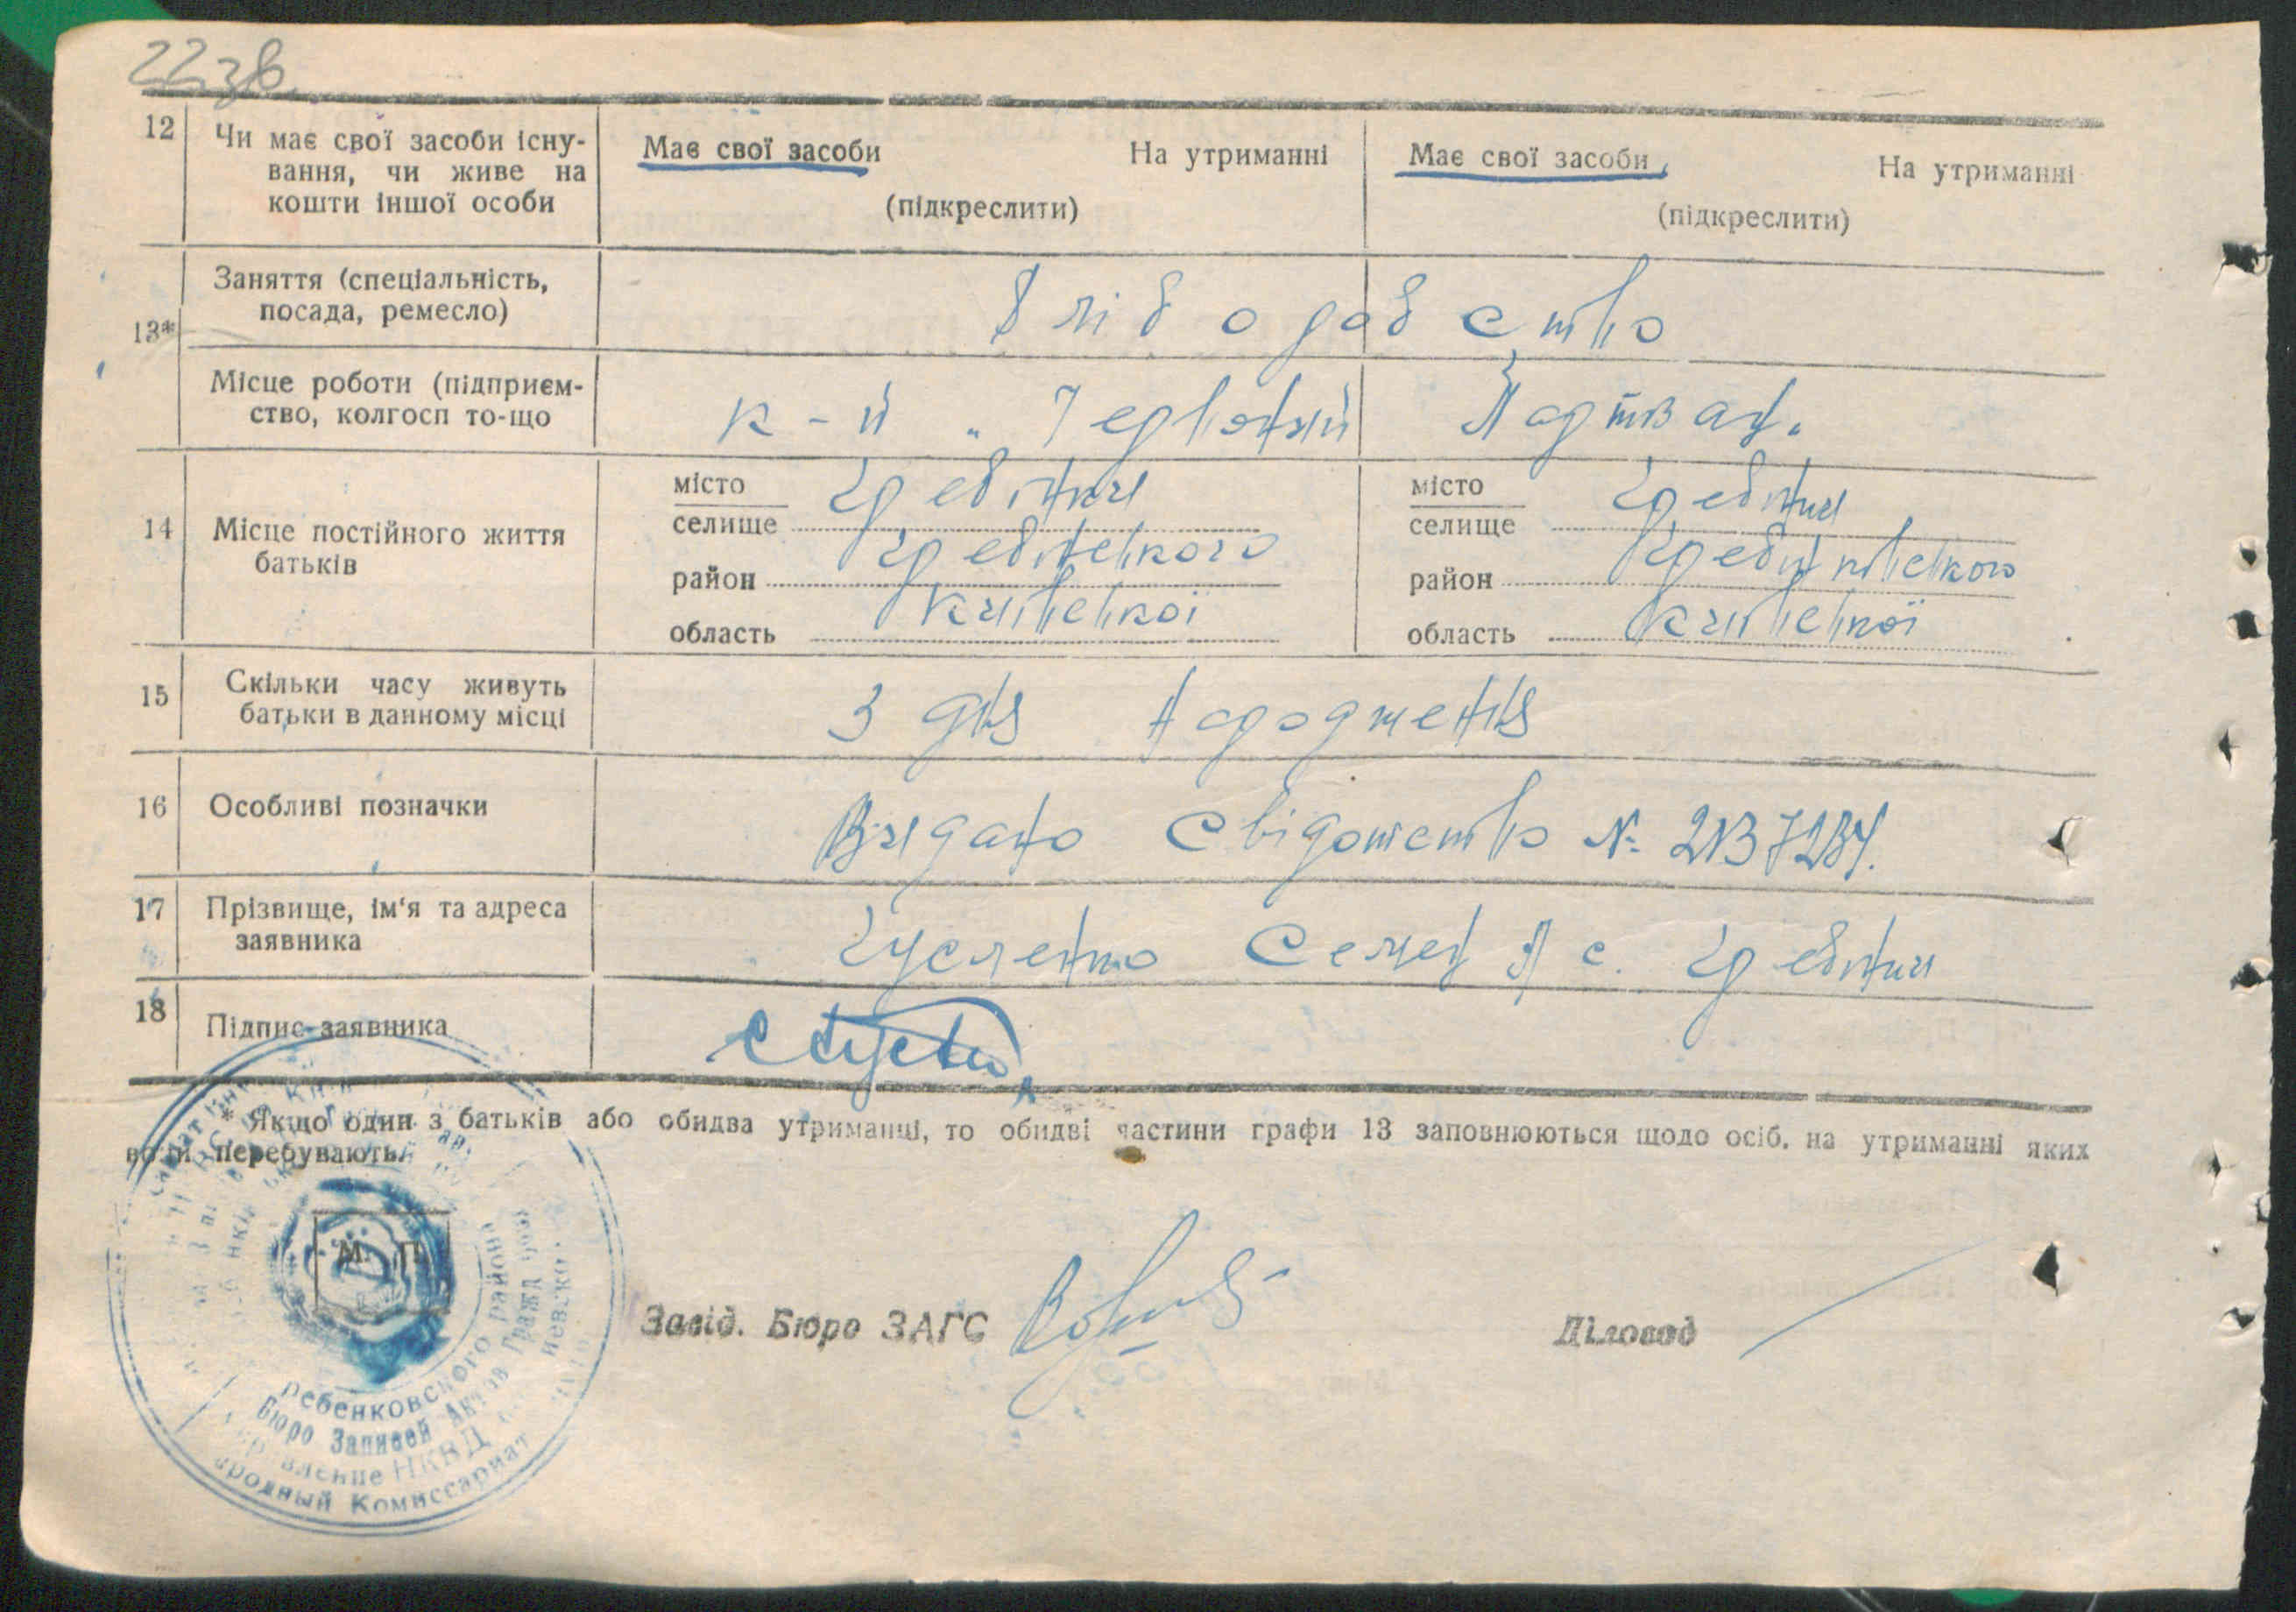 22зв.
12 Чи має свої засоби існу-
вання, чи живе на
кошти іншої особи
Має свої засоби На утриманні
(підкреслити)
Має свої засоби На утриманні
(підкреслити)
13* Заняття (спеціальність,
посада, ремесло)
хлібодарство
Місце роботи (підприєм-
ство, колгосп то-що
к-п „Червоний Партизан“
14 Місце постійного життя
батьків
місто Гребінки
селище
район Гребінківського
область Київської
місто Гребінки
селище
район Гребінківського
область Київської
15 Скільки часу живуть
батьки в данному місці
З дня народження
16 Особливі позначки
Видано свідотство №
17 Прізвище, ім‘я та адреса
заявника
Гусленко Семен П с. Гребінки
18 Підпис заявника
* Якщо один з батьків або обидва утриманці, то обидві частини графи 13 заповнюються щодо осіб, на утриманні яких
вони перебувають.
М. П.
Завід. Бюро ЗАГС
Діловод
ребенковского района
Бюро Записей Актов Гражд
Управление НКВД
ародный Комиссариат